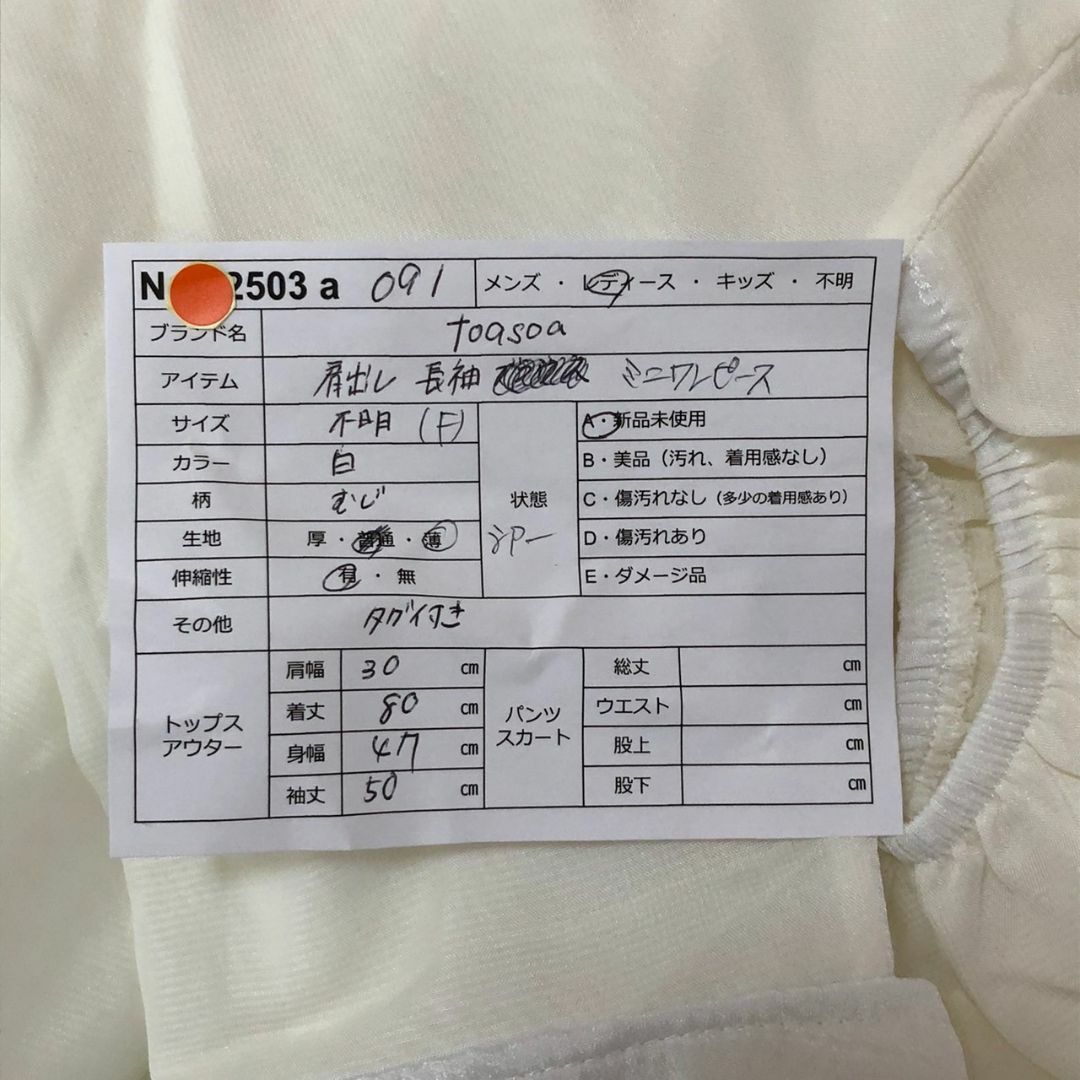 N 2503 a 091 メンズ ・ レディース ・ キッズ ・ 不明
ブランド名 toasoa
アイテム 肩出し 長袖 ミニワンピース
サイズ 不明 (F)
カラー 白
柄 むじ
生地 厚 ・ 普通 ・ 薄
伸縮性 有 ・ 無
状態
シアー
A・新品未使用
B・美品（汚れ、着用感なし）
C・傷汚れなし（多少の着用感あり）
D・傷汚れあり
E・ダメージ品
その他 タグ付き
トップス
アウター
肩幅 30 cm
着丈 80 cm
身幅 47 cm
袖丈 50 cm
パンツ
スカート
総丈 cm
ウエスト cm
股上 cm
股下 cm